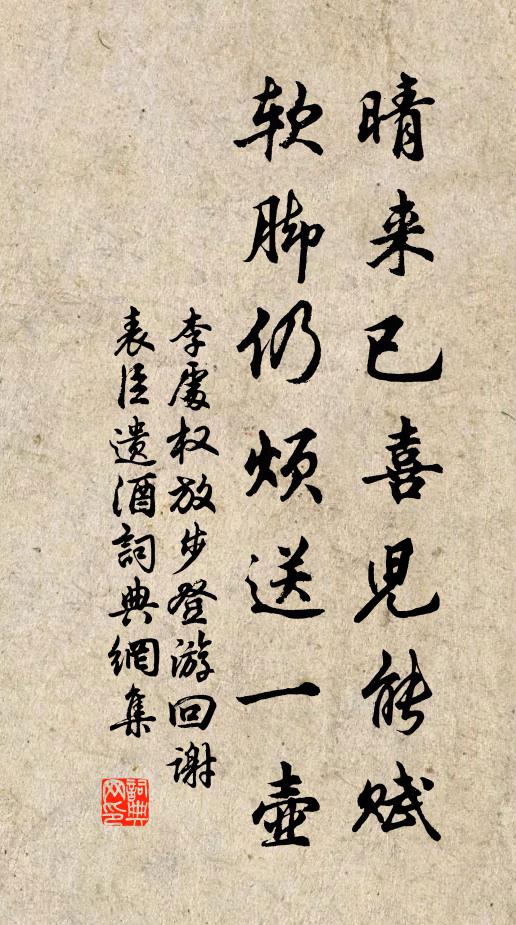 晴来已喜児能赋
软脚仍烦送一壶
李處权放步登游回谢
表臣遗酒詞典網集
詞典网印